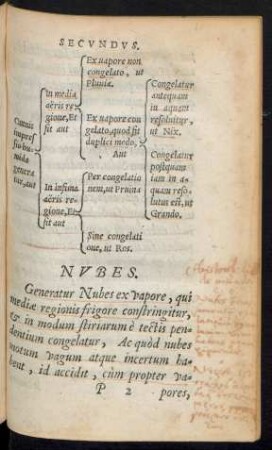 SECVNDVS.
Omnis
impressio
humida
generatur, aut
In media
aëris regione, Et
fit aut
In infima
aëris regione, Et
fit aut
Ex vapore non
congelato, ut
Pluuia.
Ex vapore congelato, quod fit
duplici modo,
Aut
Per congelationem, ut Pruina
Sine congelatione, ut Ros.
Congelatur
antequam
in aquam
resoluitur,
ut Nix.
Congelatur
postquam
iam in aquam resolutus est, ut
Grando.
NVBES.
Generatur Nubes ex vapore, qui
mediæ regionis frigore constringitur,
& in modum stiriarum è tectis pendentium congelatur, Ac quòd nubes
motum vagum atque incertum habent, id accidit, cùm propter va-
P 2 pores,